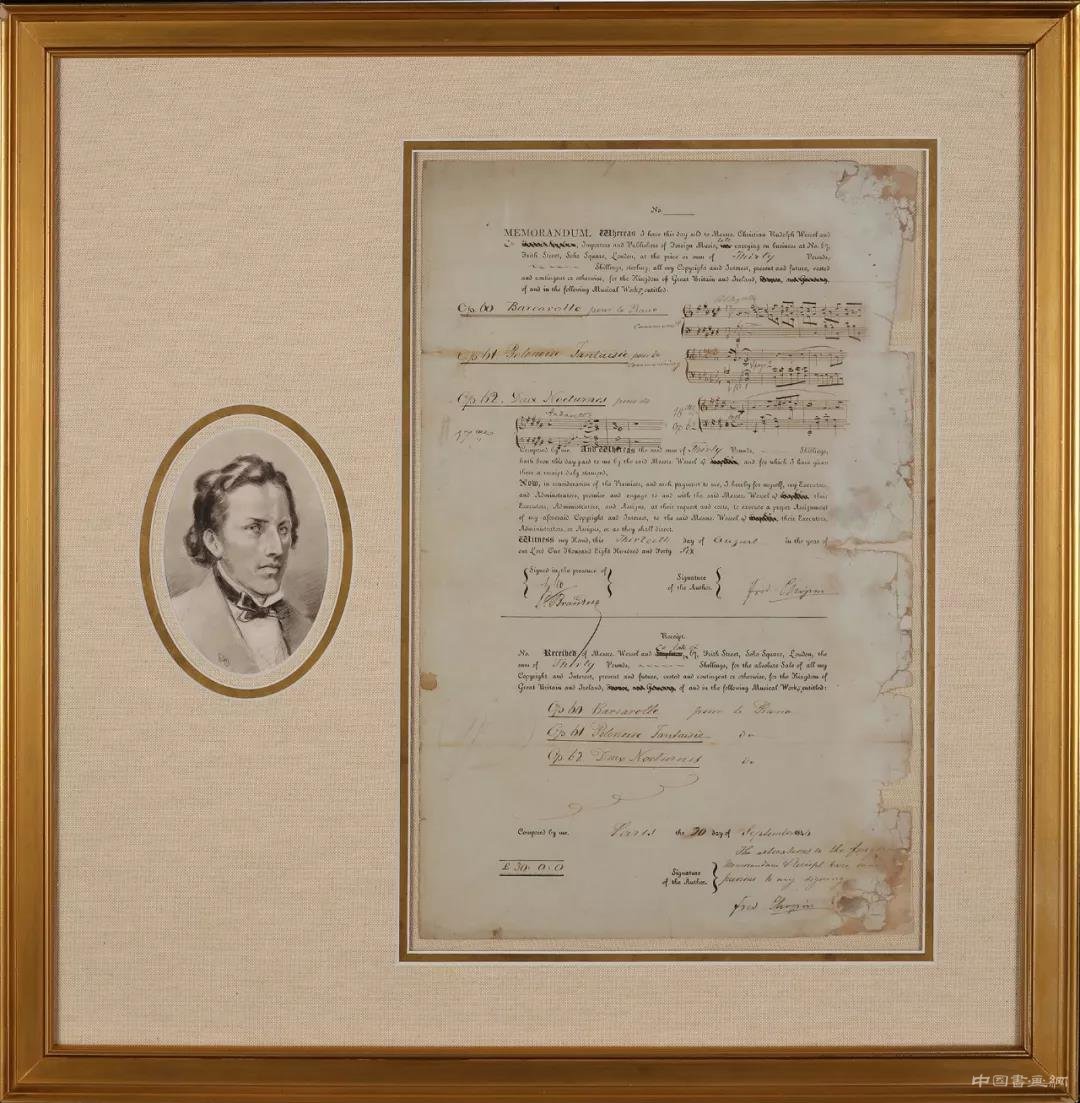 No.
MEMORANDUM, Whereas I have this day sold to Messrs. Christian Rudolph Wessel and
Co Importers and Publishers of Foreign Music, late carrying on business at No. 67,
Frith Street, Soho Square, London, at the price or sum of Thirty Pounds,
Shillings, sterling, all my Copyright and Interest, present and future, vested
and contingent or otherwise, for the Kingdom of Great Britain and Ireland,
of and in the following Musical Works, entitled:
Op 60 Barcarolle pour le Piano
Op 61 Polonaise Fantaisie pour do
Op 62. Deux Nocturnes pour do
18me
Op 62
17me
Composed by me. And Whereas the said sum of Thirty Pounds, Shillings,
hath been this day paid to me by the said Messrs. Wessel & and for which I have given
them a receipt duly stamped,
Now, in consideration of the Premises, and such payment to me, I hereby for myself, my Executors,
and Administrators, promise and engage to and with the said Messrs. Wessel & their
Executors, Administrators, and Assigns, at their request and costs, to execute a proper Assignment
of my aforesaid Copyright and Interest, to the said Messrs. Wessel & their Executors,
Administrators, or Assigns, or as they shall direct.
Witness my Hand, this Thirtieth day of August in the year of
our Lord One Thousand Eight Hundred and Forty Six
Signed in the presence of
Signature
of the Author.
fred Chopin
Receipt.
No. Received of Messrs. Wessel and Co late of 67, Frith Street, Soho Square, London, the
sum of Thirty Pounds, Shillings, for the absolute Sale of all my
Copyright and Interest, present and future, vested and contingent or otherwise, for the Kingdom of
Great Britain and Ireland, of and in the following Musical Works, entitled:
Op 60 Barcarolle pour le Piano
Op 61 Polonaise Fantaisie do
Op 62. Deux Nocturnes do
Composed by me. Paris the 20 day of September
The alterations in the
Memorandum & Receipt
previous to my signing
£ 30. 0. 0
Signature
of the Author.
fred Chopin
中国書画網